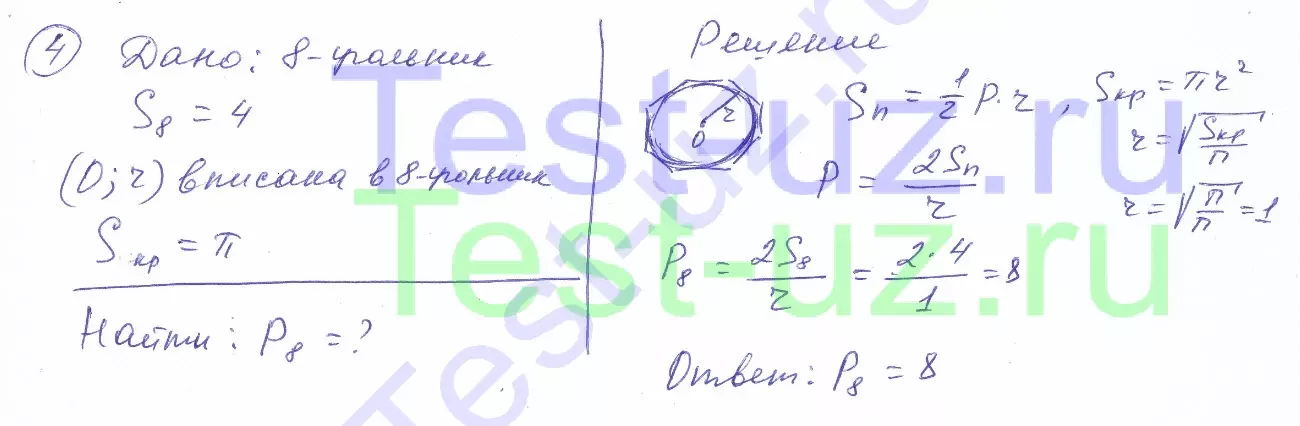 4 Дано: 8-угольник
S₈ = 4
(O; r) вписана в 8-угольник
Sкр = π
Найти: P₈ = ?
Решение
r
O
Sп = 1/2 P·r, Sкр = πr²
r = √(Sкр/π)
P = 2Sп/r
r = √(π/π) = 1
P₈ = 2S₈/r = 2·4/1 = 8
Ответ: P₈ = 8
Test-uz.ru
Test-uz.ru
Test-uz.ru